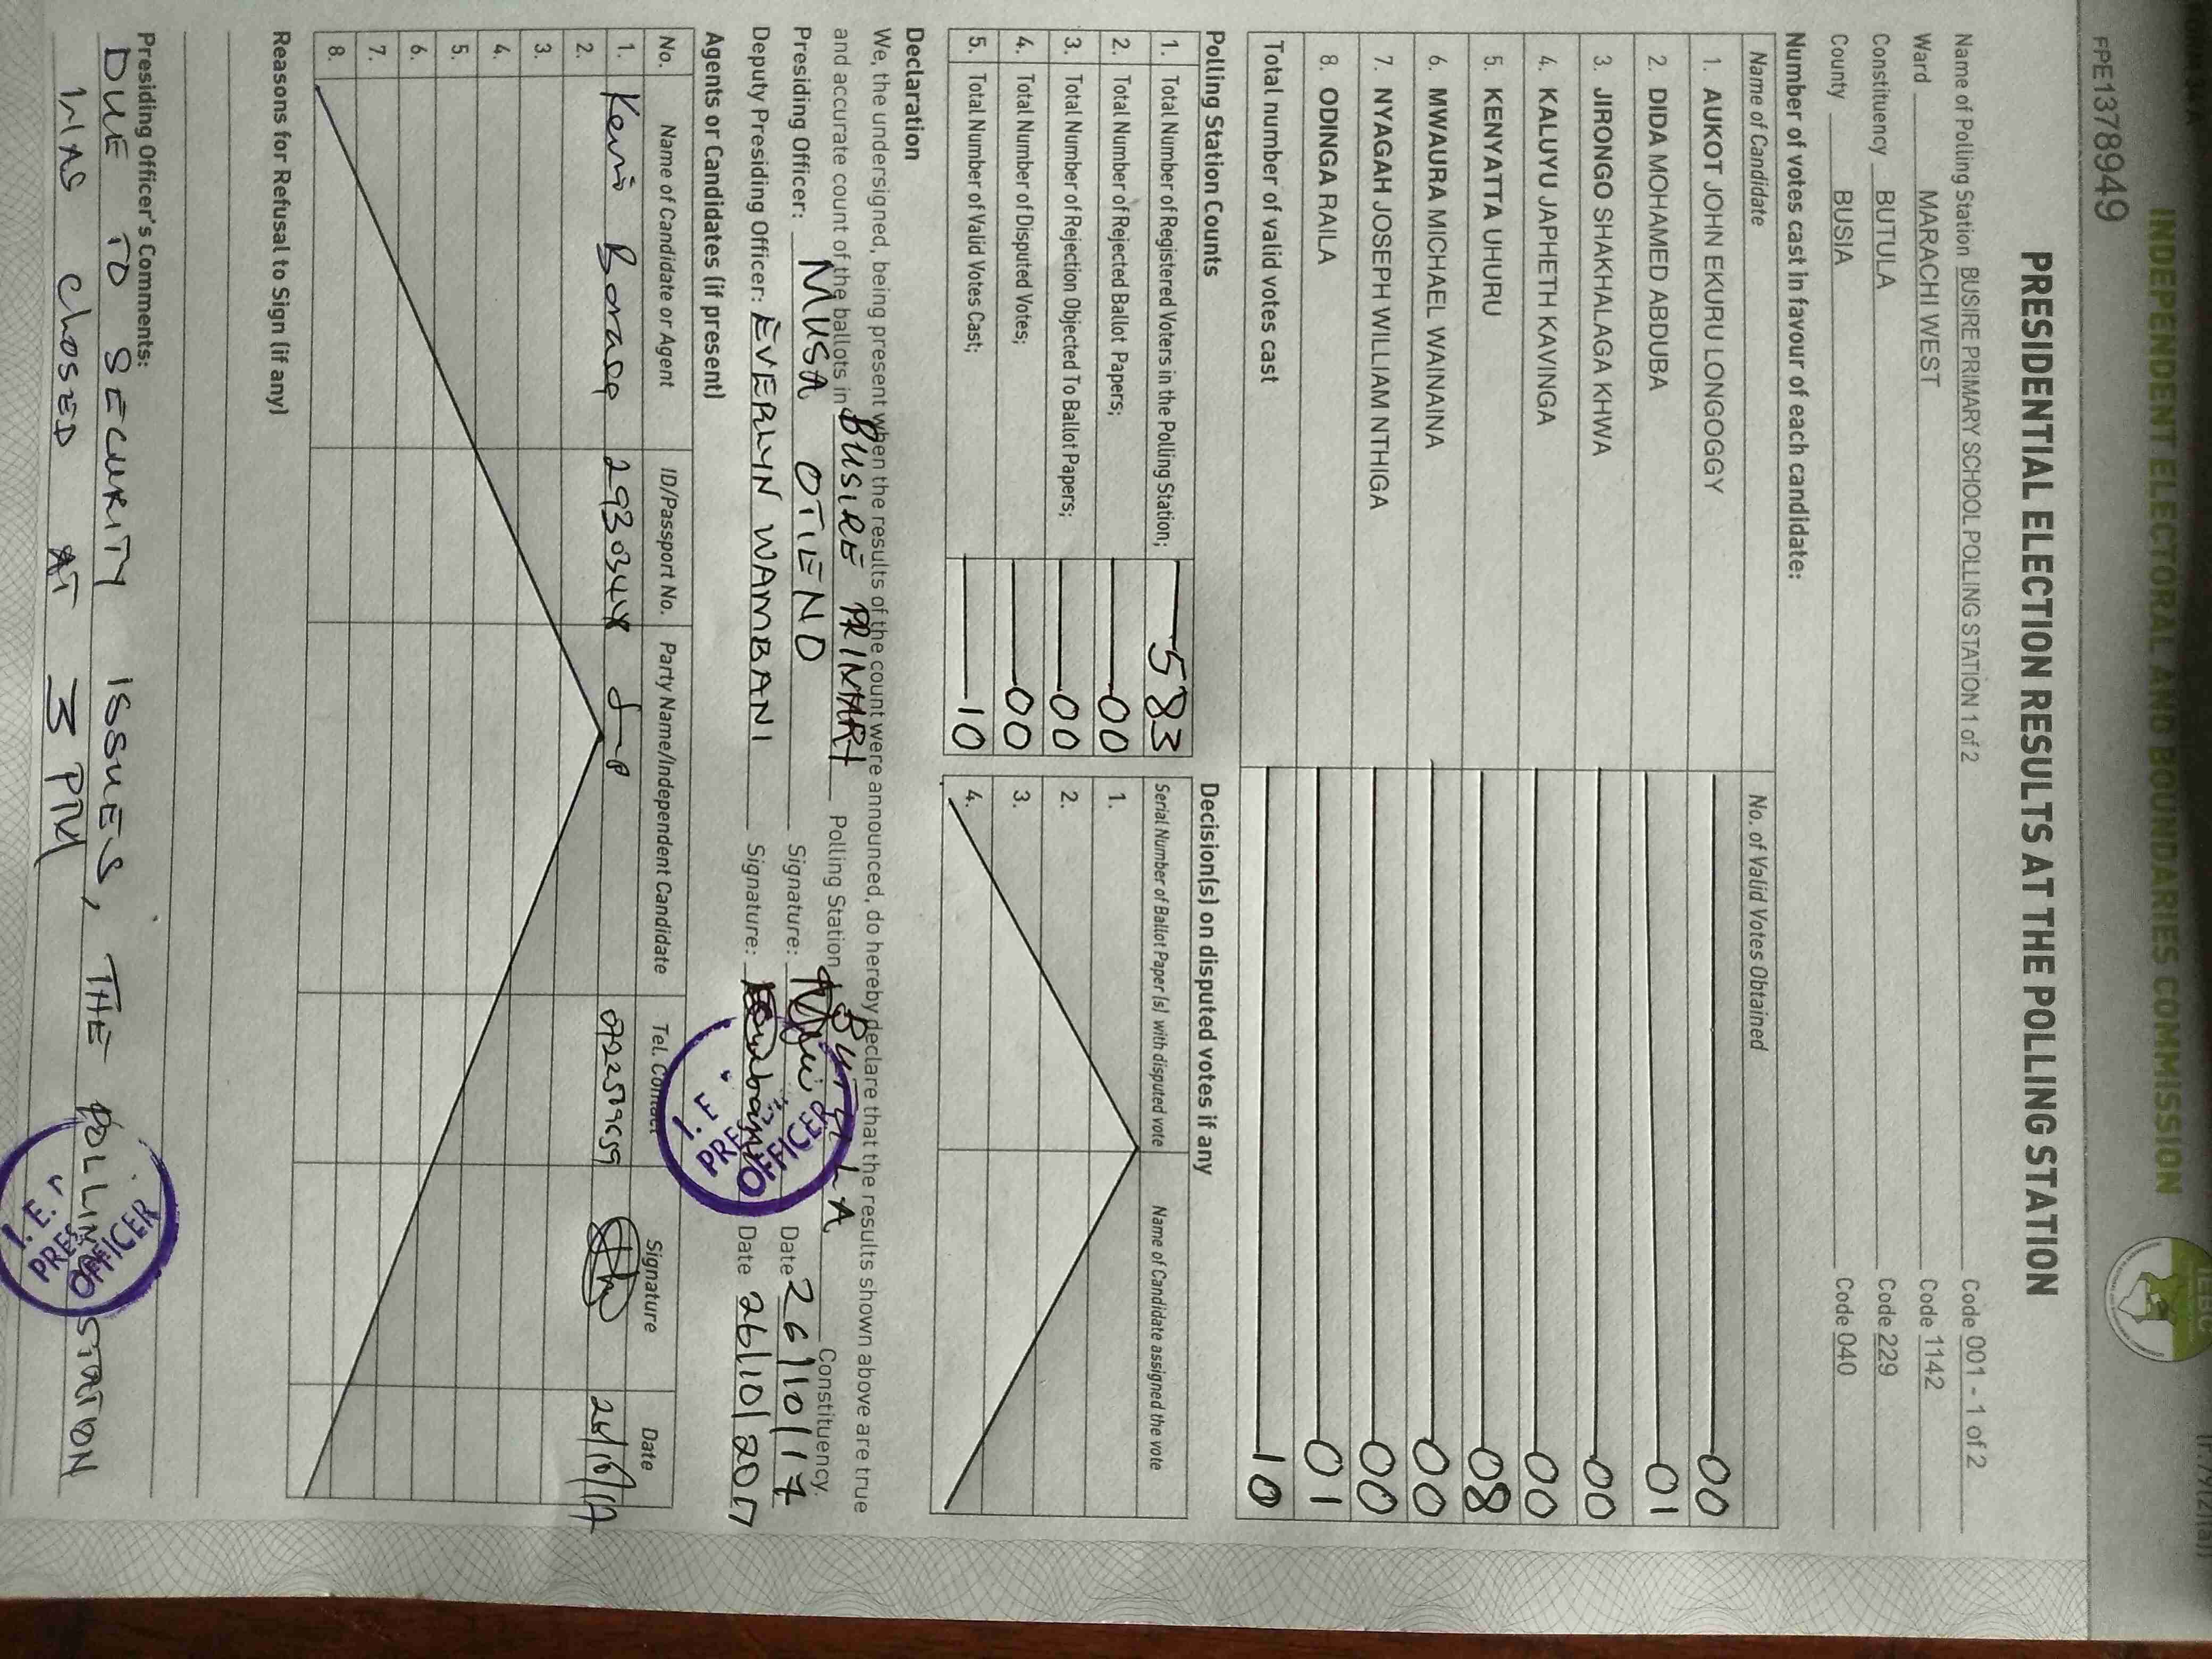 INDEPENDENT ELECTORAL AND BOUNDARIES COMMISSION
FPE1378949
PRESIDENTIAL ELECTION RESULTS AT THE POLLING STATION
Name of Polling Station BUSIRE PRIMARY SCHOOL POLLING STATION 1 of 2 Code 001 - 1 of 2
Ward MARACHI WEST Code 1142
Constituency BUTULA Code 229
County BUSIA Code 040
Number of votes cast in favour of each candidate:
Name of Candidate No. of Valid Votes Obtained
1. AUKOT JOHN EKURU LONGOGGY 00
2. DIDA MOHAMED ABDUBA 01
3. JIRONGO SHAKHALAGA KHWA 00
4. KALUYU JAPHETH KAVINGA 00
5. KENYATTA UHURU 08
6. MWAURA MICHAEL WAINAINA 00
7. NYAGAH JOSEPH WILLIAM NTHIGA 00
8. ODINGA RAILA 01
Total number of valid votes cast 10
Polling Station Counts
1. Total Number of Registered Voters in the Polling Station; 583
2. Total Number of Rejected Ballot Papers; 00
3. Total Number of Rejection Objected To Ballot Papers; 00
4. Total Number of Disputed Votes; 00
5. Total Number of Valid Votes Cast; 10
Decision(s) on disputed votes if any
Serial Number of Ballot Paper (s) with disputed vote Name of Candidate assigned the vote
1.
2.
3.
4.
Declaration
We, the undersigned, being present when the results of the count were announced, do hereby declare that the results shown above are true
and accurate count of the ballots in BUSIRE PRIMARY Polling Station BUTULA Constituency.
Presiding Officer: MUSA OTIENO Signature: Date 26/10/17
Deputy Presiding Officer: EVERLYN WAMBANI Signature: Wambani Date 26/10/2017
Agents or Candidates (if present)
No. Name of Candidate or Agent ID/Passport No. Party Name/Independent Candidate Tel. Contact Signature Date
1. Kevin 26/10/17
2.
3.
4.
5.
6.
7.
8.
Reasons for Refusal to Sign (if any)
Presiding Officer's Comments:
DUE TO SECURITY ISSUES, THE POLLING STATION
WAS CLOSED AT 3 PM
PRES OFFICER
PRES OFFICER